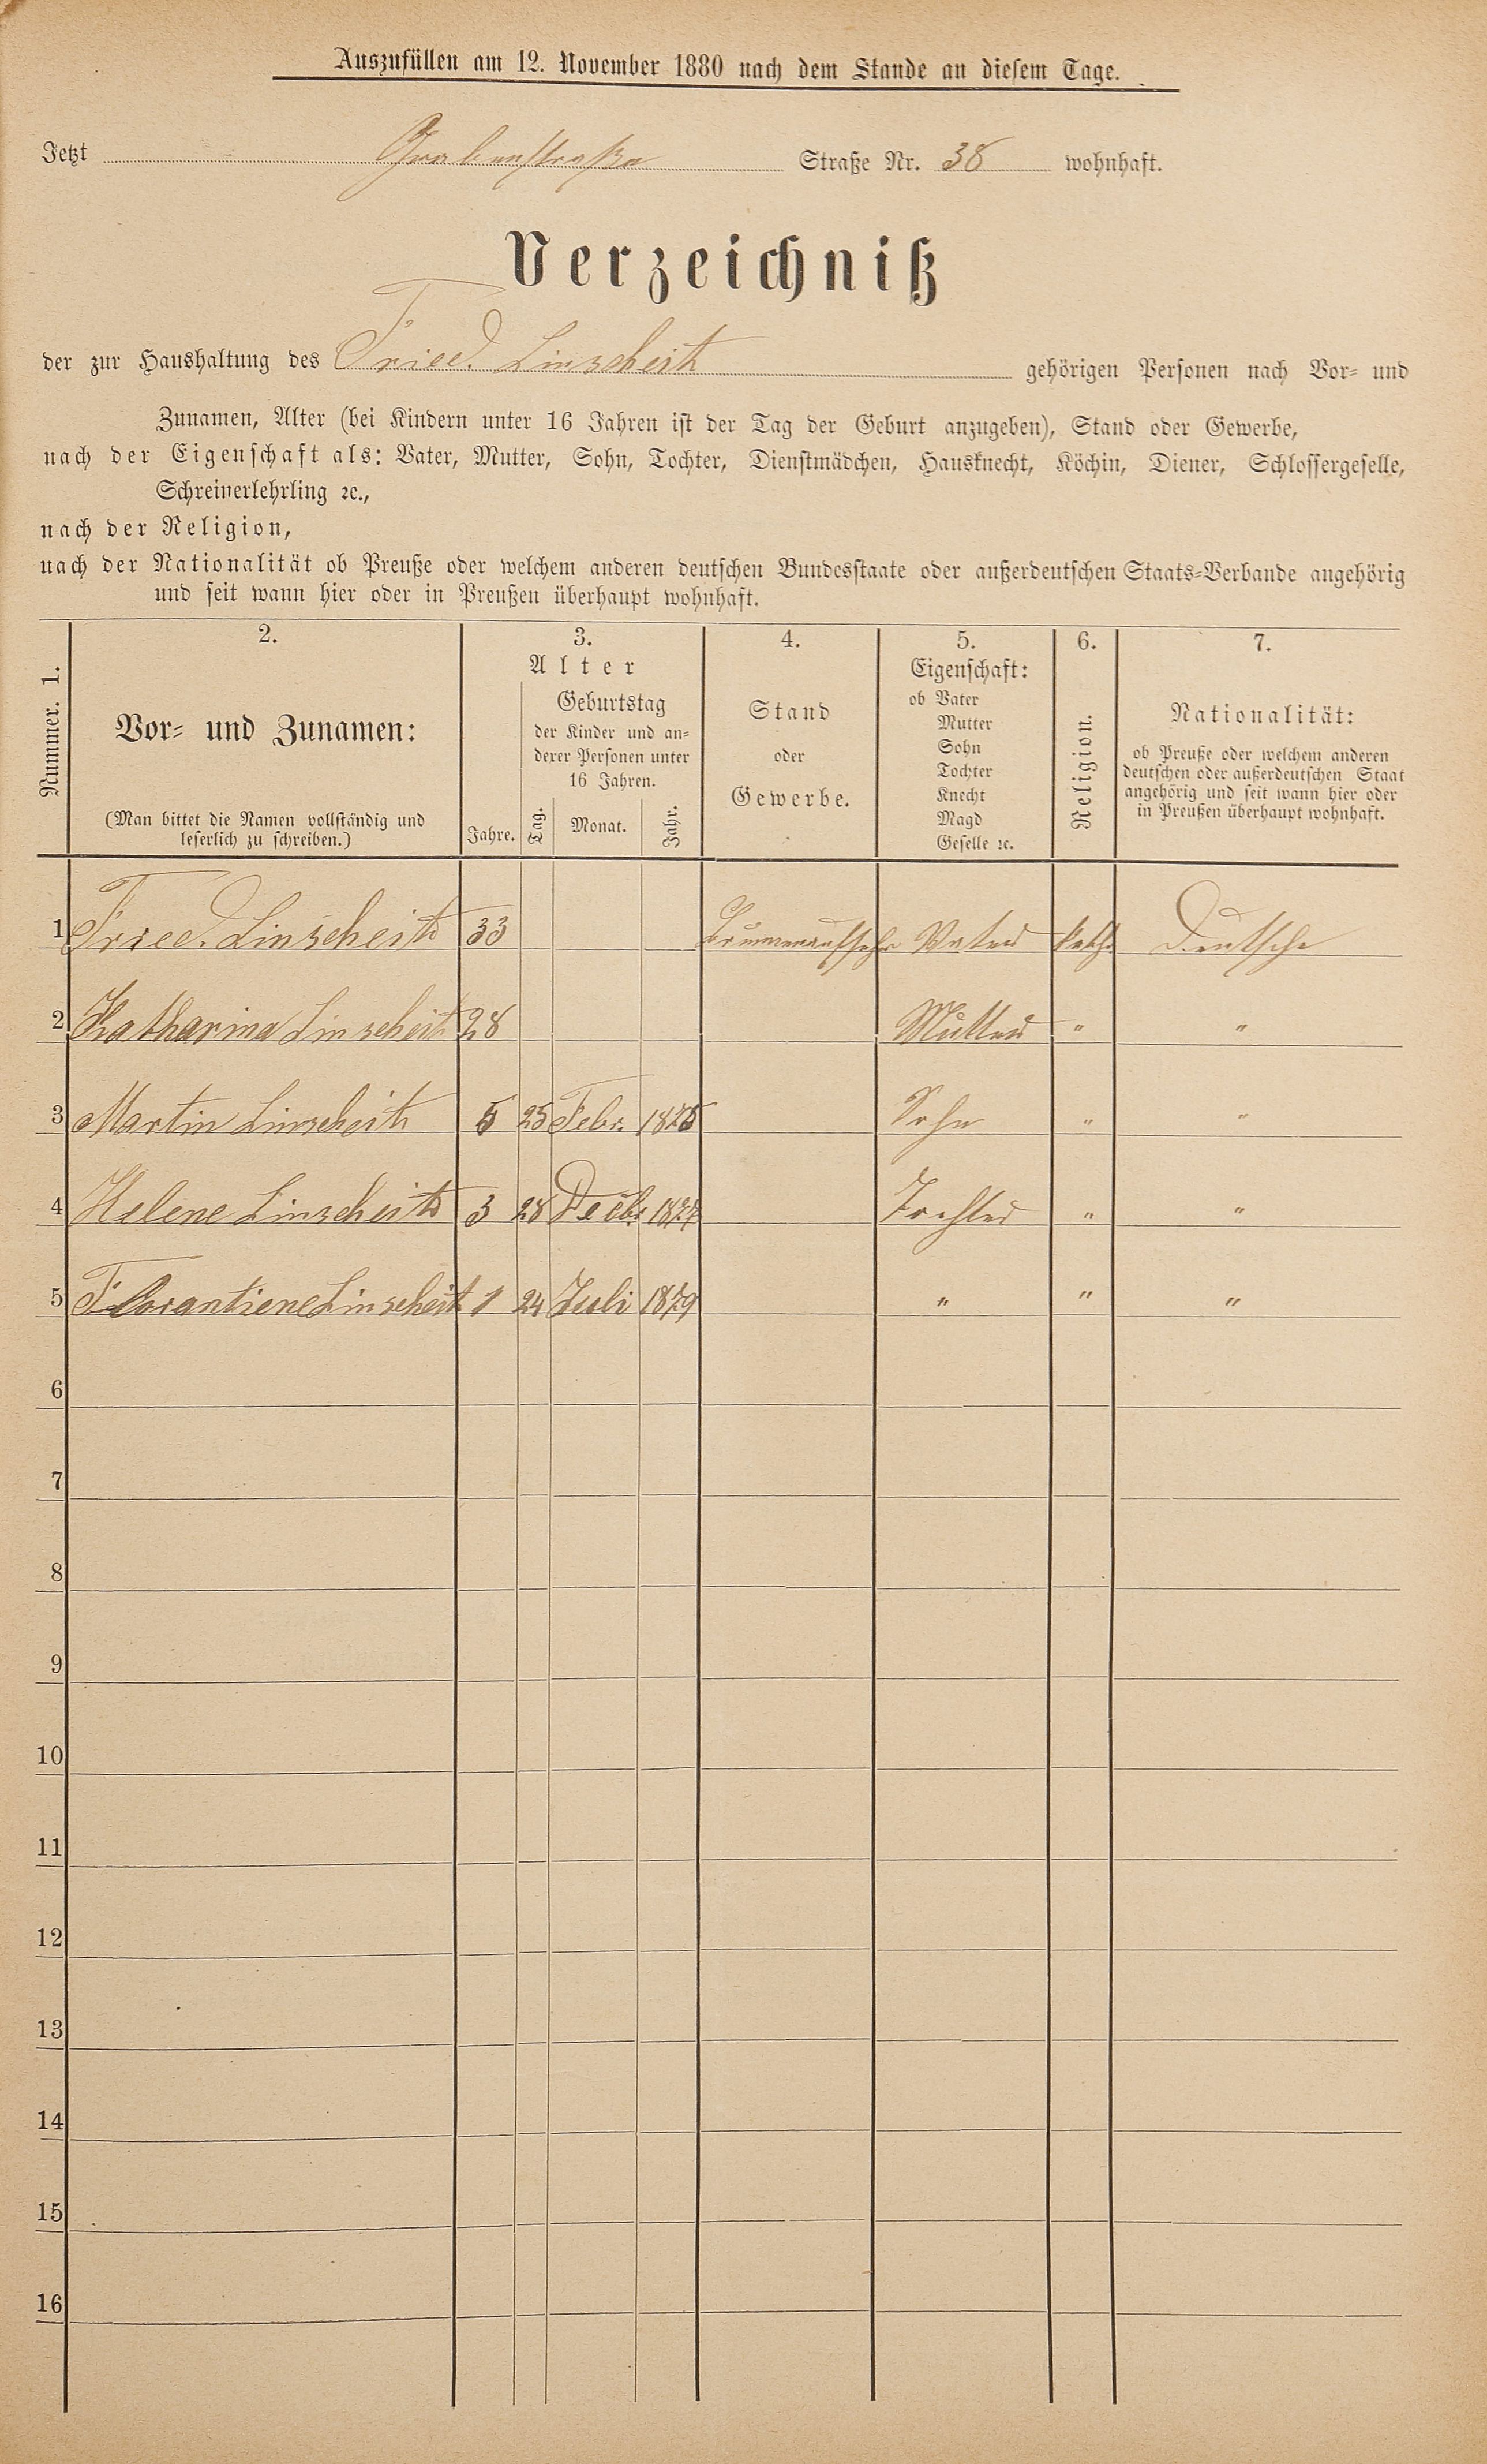 Auszufüllen am 12. November 1880 nach dem Stande an diesem Tage.
Jetzt Grabenstraße Straße Nr. 38 wohnhaft.
Verzeichniß
der zur Haushaltung des Fried. Linscheith gehörigen Personen nach Vor- und
Zunamen, Alter (bei Kindern unter 16 Jahren ist der Tag der Geburt anzugeben), Stand oder Gewerbe,
nach der Eigenschaft als: Vater, Mutter, Sohn, Tochter, Dienstmädchen, Hausknecht, Köchin, Diener, Schlossergeselle,
Schreinerlehrling ꝛc.,
nach der Religion,
nach der Nationalität ob Preuße oder welchem anderen deutschen Bundesstaate oder außerdeutschen Staats-Verbande angehörig
und seit wann hier oder in Preußen überhaupt wohnhaft.
Nummer. 1.
2.
Vor- und Zunamen:
(Man bittet die Namen vollständig und
leserlich zu schreiben.)
3.
Alter
Jahre.
Geburtstag
der Kinder und an-
derer Personen unter
16 Jahren.
Tag. Monat. Jahr.
4.
Stand
oder
Gewerbe.
5.
Eigenschaft:
ob Vater
Mutter
Sohn
Tochter
Knecht
Magd
Geselle ꝛc.
6.
Religion.
7.
Nationalität:
ob Preuße oder welchem anderen
deutschen oder außerdeutschen Staat
angehörig und seit wann hier oder
in Preußen überhaupt wohnhaft.
1 Fried. Linscheith 33 Brunnenaufseher Vater kath. Deutsche
2 Katharina Linscheith 28 Mutter " "
3 Martin Linscheith 5 25 Febr. 1875 Sohn " "
4 Helene Linscheith 3 28 Decbr 1877 Tochter " "
5 Florantiene Linscheith 1 24 Juli 1879 " " "
6
7
8
9
10
11
12
13
14
15
16